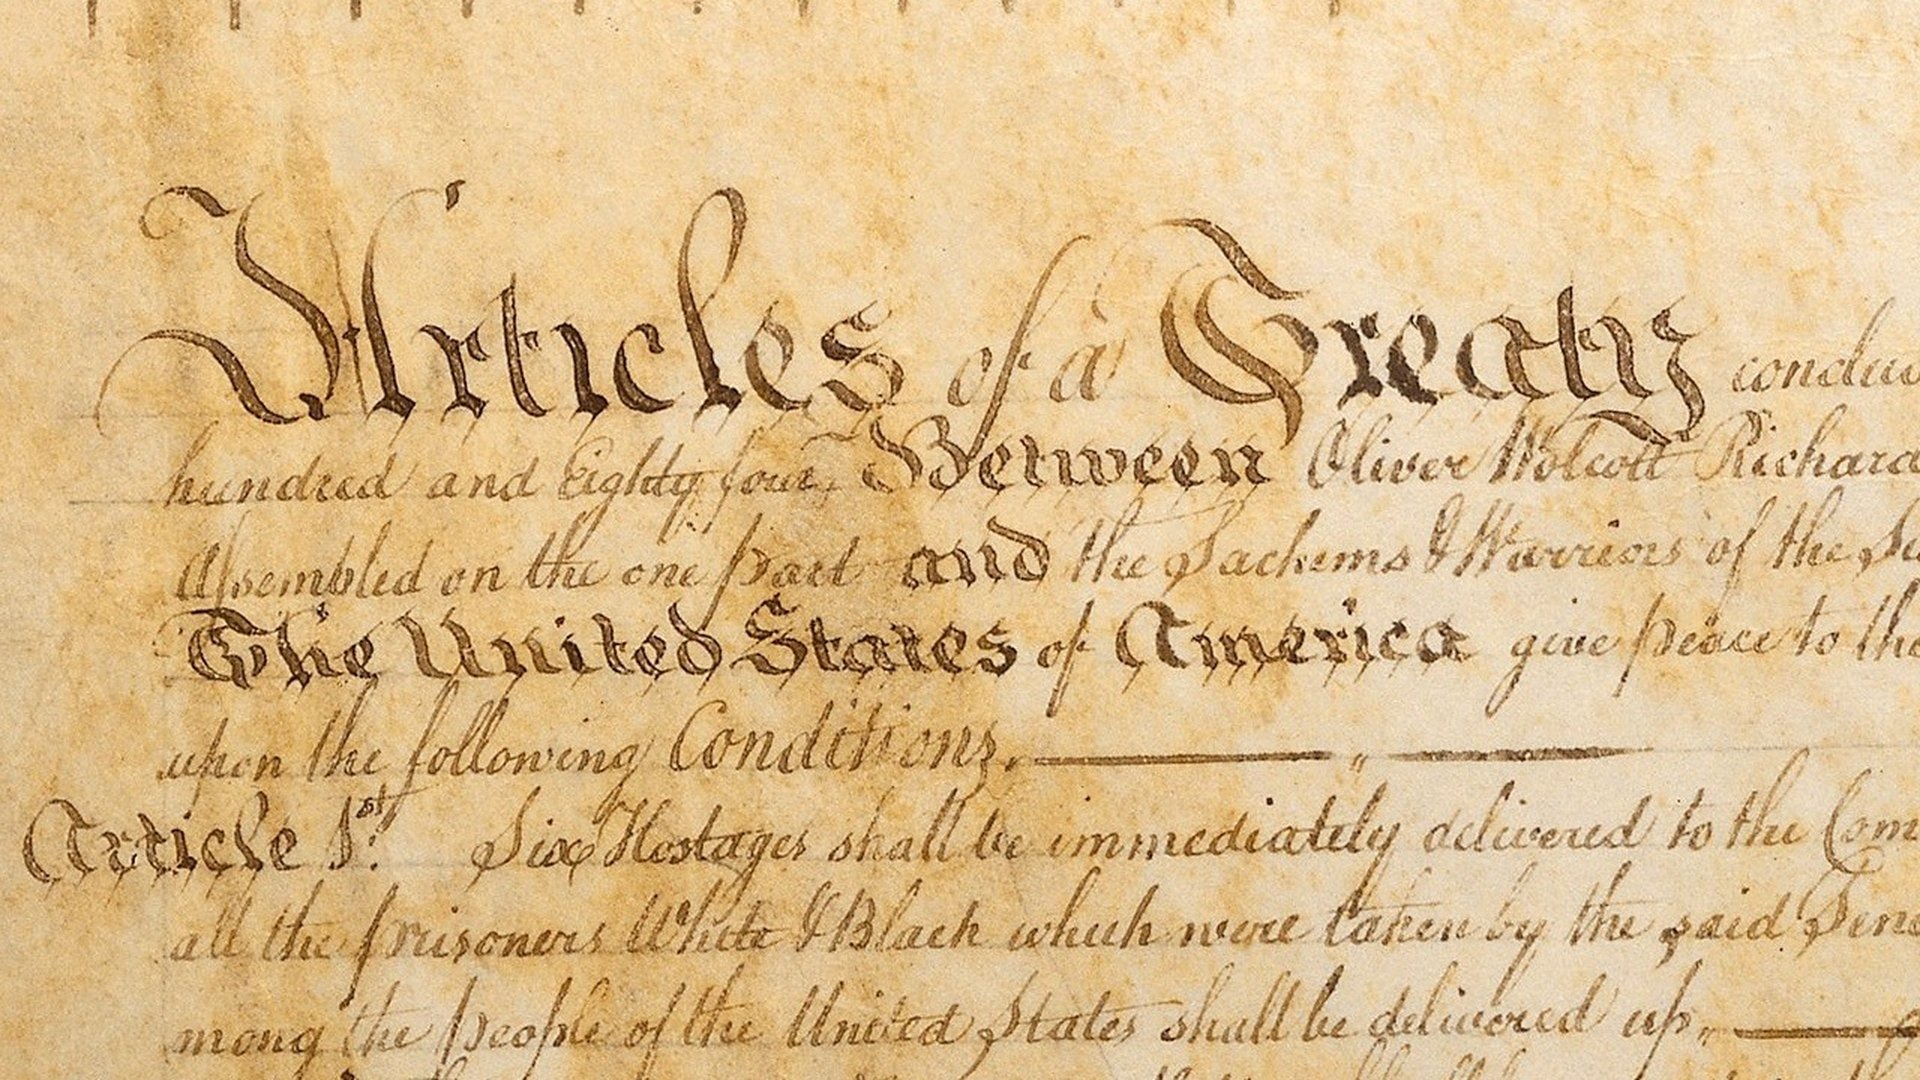 Articles of a Treaty conclu
hundred and Eighty four, Between Oliver Wolcott Richard
Assembled on the one part and the Sachems & Warriors of the S
The United States of America give peace to the
upon the following Conditions.
Article 1st. Six Hostages shall be immediately delivered to the Com
all the prisoners White & Black which were taken by the said Sene
mong the people of the United States shall be delivered up,